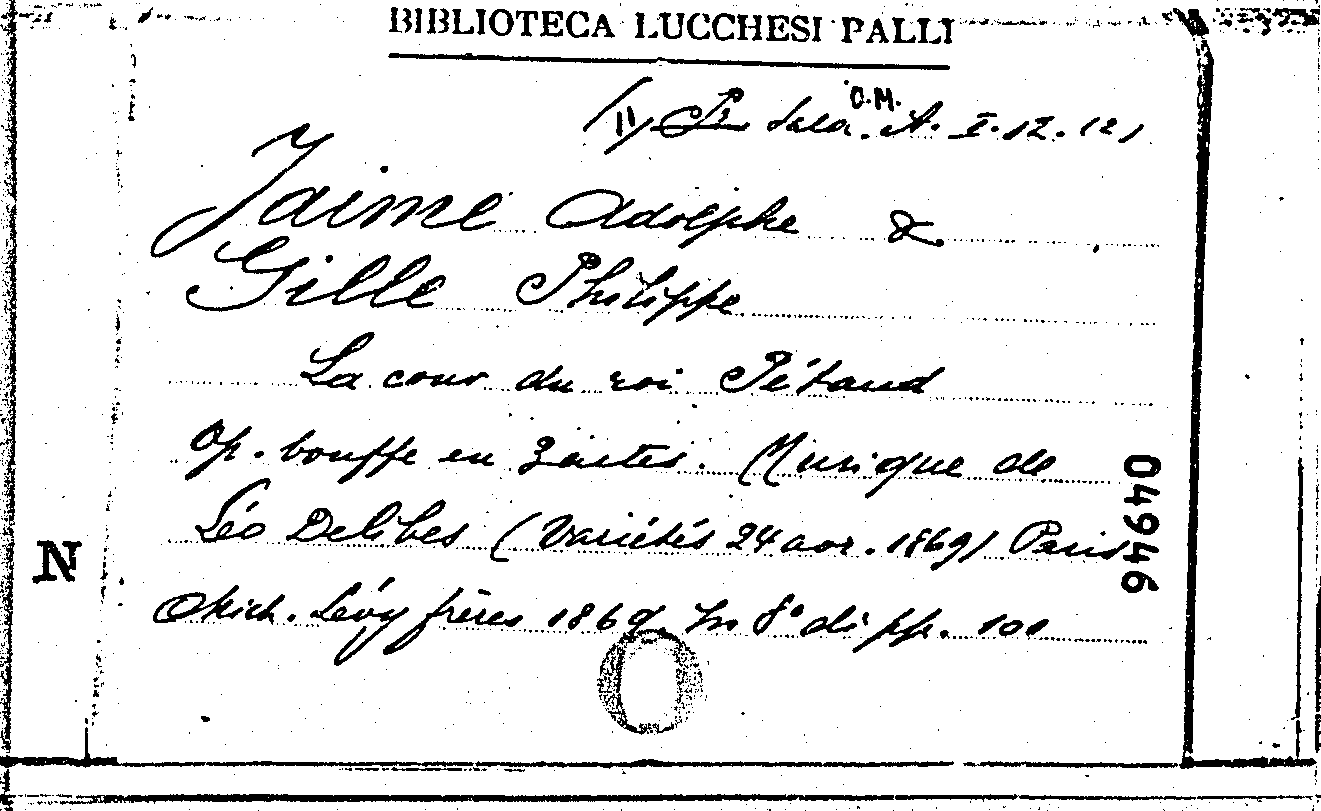 BIBLIOTECA LUCCHESI PALLI
O.M.
Sala. A. I. 12. 12,
Jaime Adolphe &
Gille Philippe
La cour du roi Pétaud
Op. bouffe en 3 actes. Musique de
Léo Delibes (Variétés 24 avr. 1869) Paris
Mich. Lévy frères 1869. In 8° di pp. 101
04946
N
O